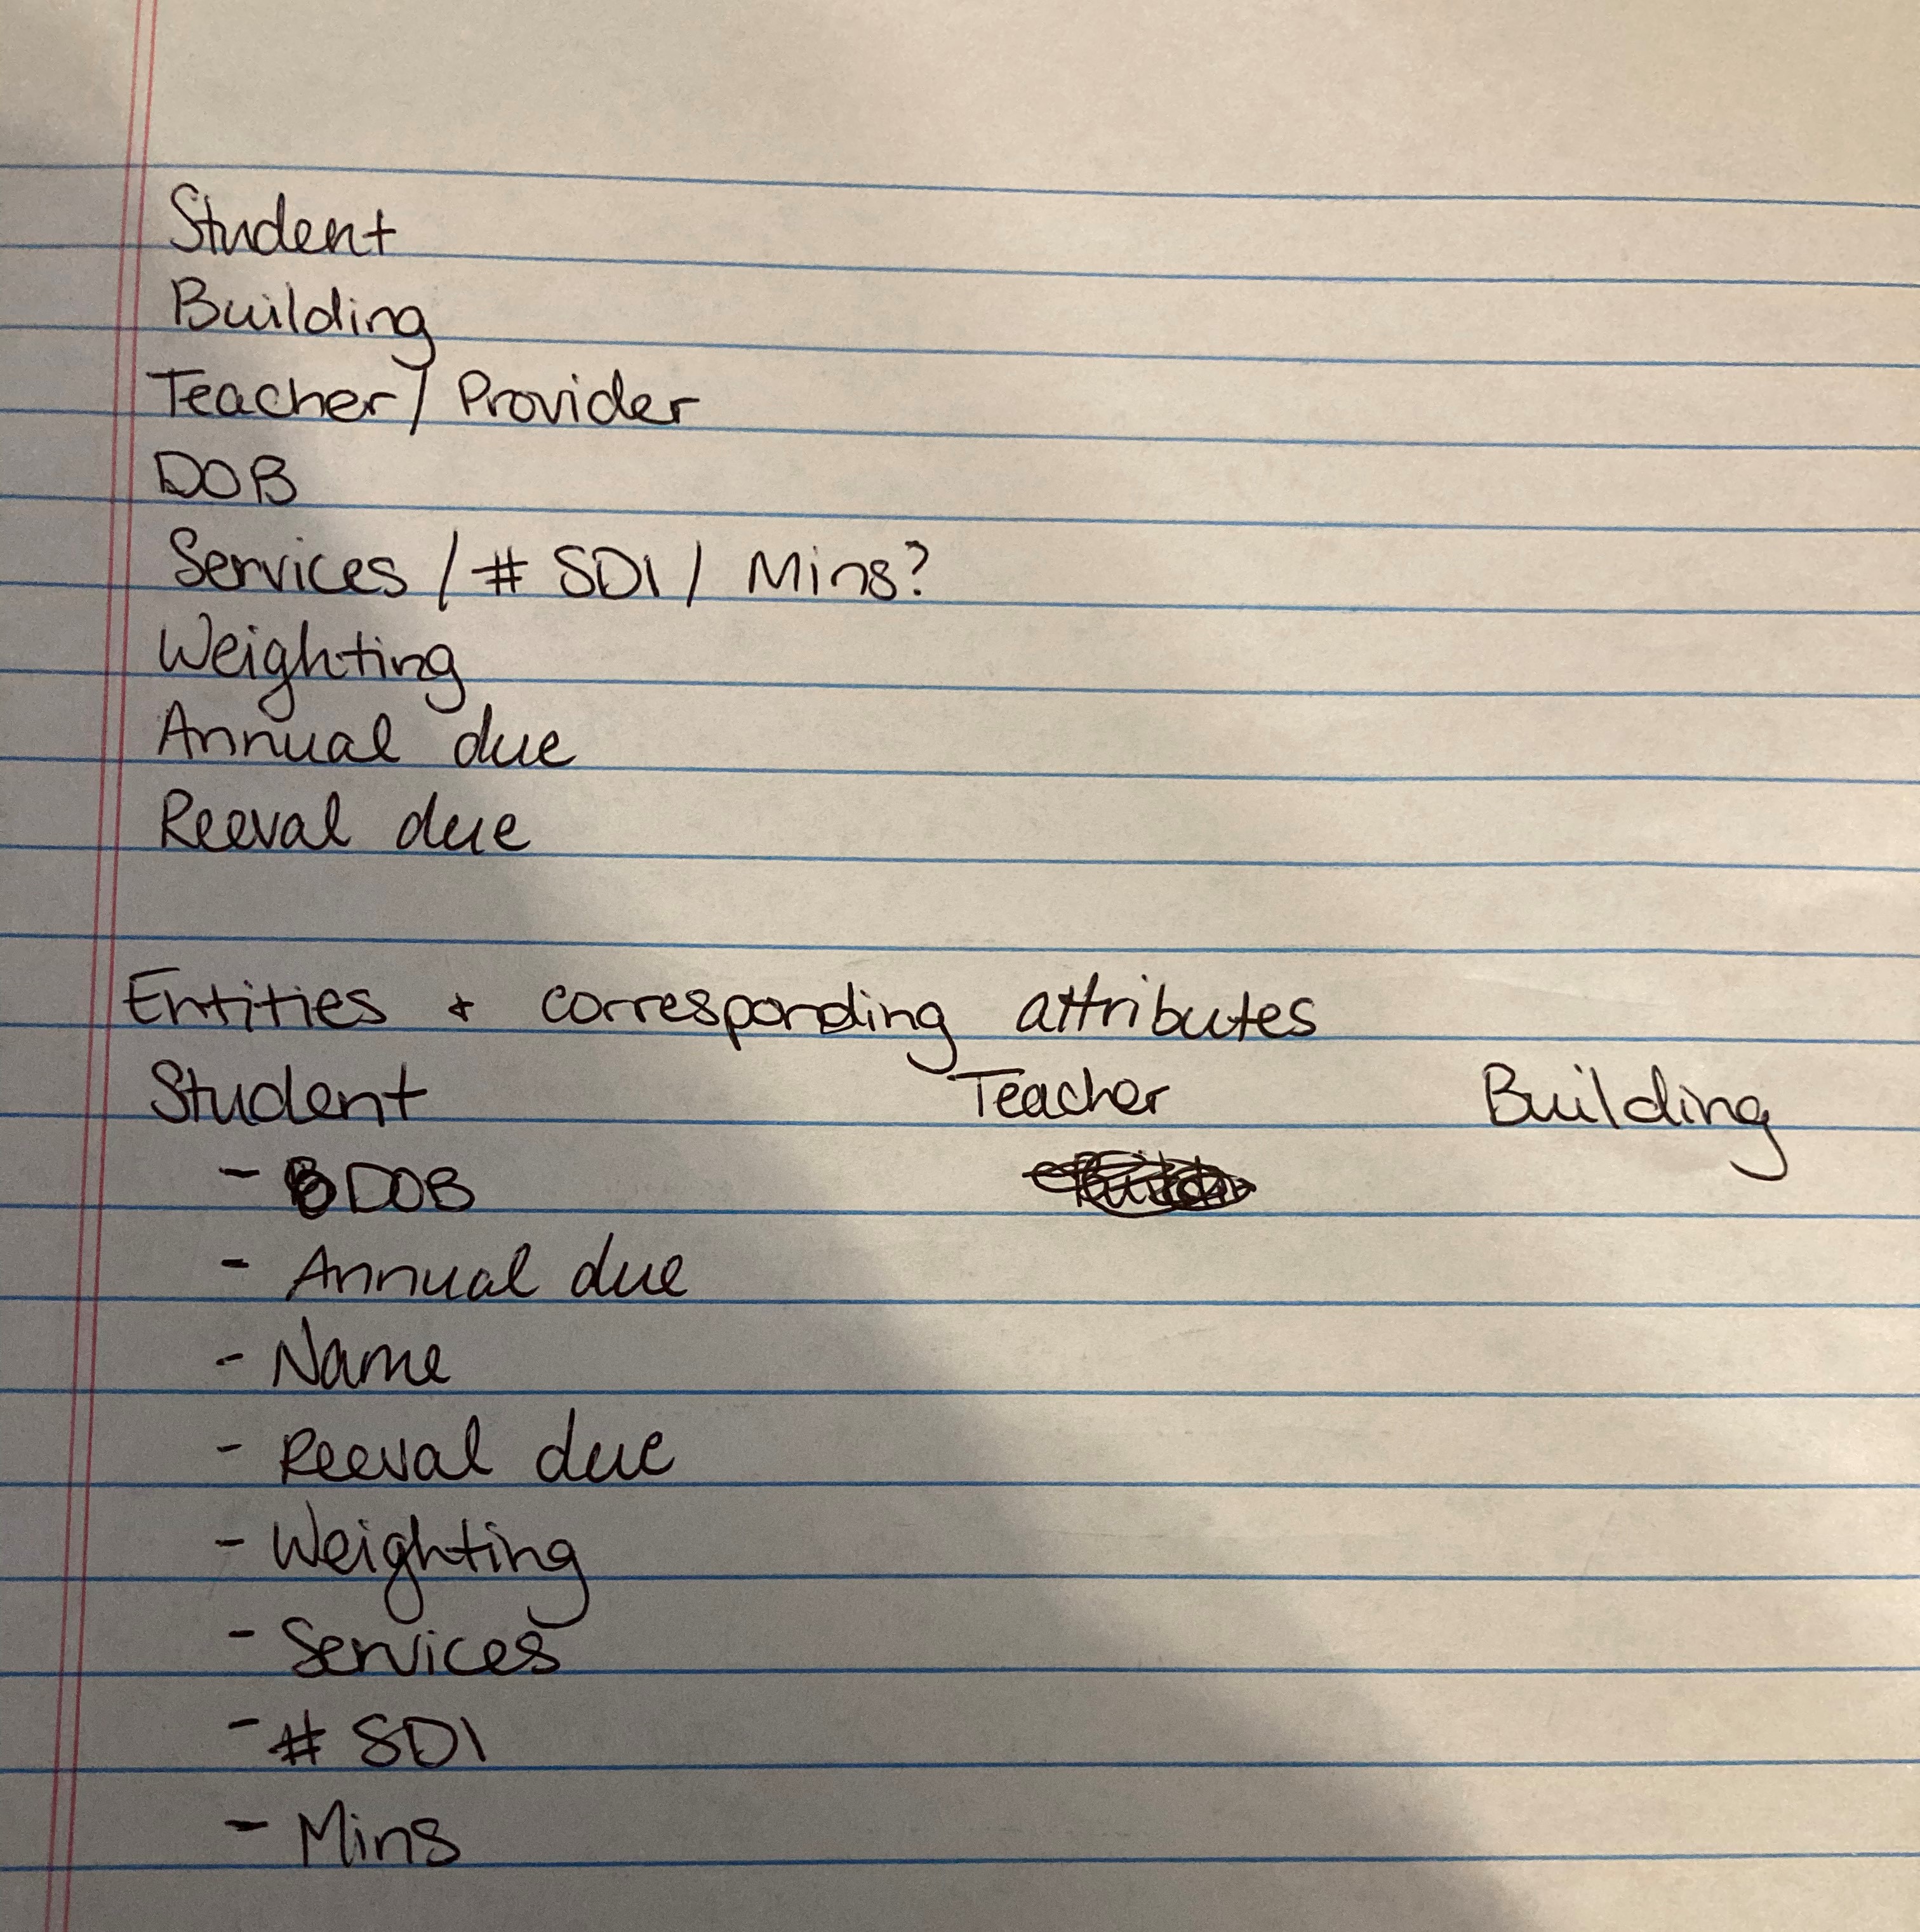 Student
Building
Teacher/ Provider
DOB
Services / # SDI / Mins?
Weighting
Annual due
Reeval due
Entities + corresponding attributes
Student Teacher Building
- DOB
- Annual due
- Name
- Reeval due
- Weighting
- Services
- # SDI
- Mins